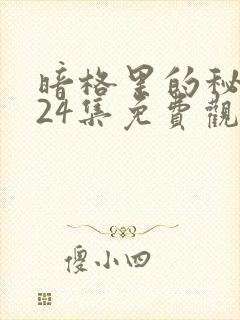 暗格里的秘
24集免費觀
傻小四